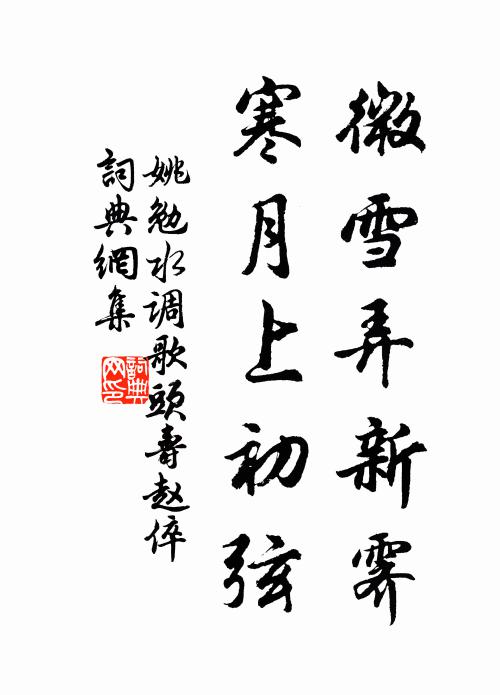 微雪弄新霽
寒月上初弦
姚勉水调歌頭壽赵倅
詞典網集
詞典網印